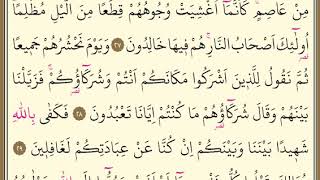 مِنْ عَاصِمٍ كَأَنَّمَا أُغْشِيَتْ وُجُوهُهُمْ قِطَعًا مِنَ الَّيْلِ مُظْلِمًا
أُولَٰئِكَ أَصْحَابُ النَّارِ هُمْ فِيهَا خَالِدُونَ ٢٧ وَيَوْمَ نَحْشُرُهُمْ جَمِيعًا
ثُمَّ نَقُولُ لِلَّذِينَ أَشْرَكُوا مَكَانَكُمْ أَنْتُمْ وَشُرَكَاؤُكُمْ فَزَيَّلْنَا
بَيْنَهُمْ وَقَالَ شُرَكَاؤُهُمْ مَا كُنْتُمْ إِيَّانَا تَعْبُدُونَ ٢٨ فَكَفَى بِاللهِ
شَهِيدًا بَيْنَنَا وَبَيْنَكُمْ إِنْ كُنَّا عَنْ عِبَادَتِكُمْ لَغَافِلِينَ ٢٩